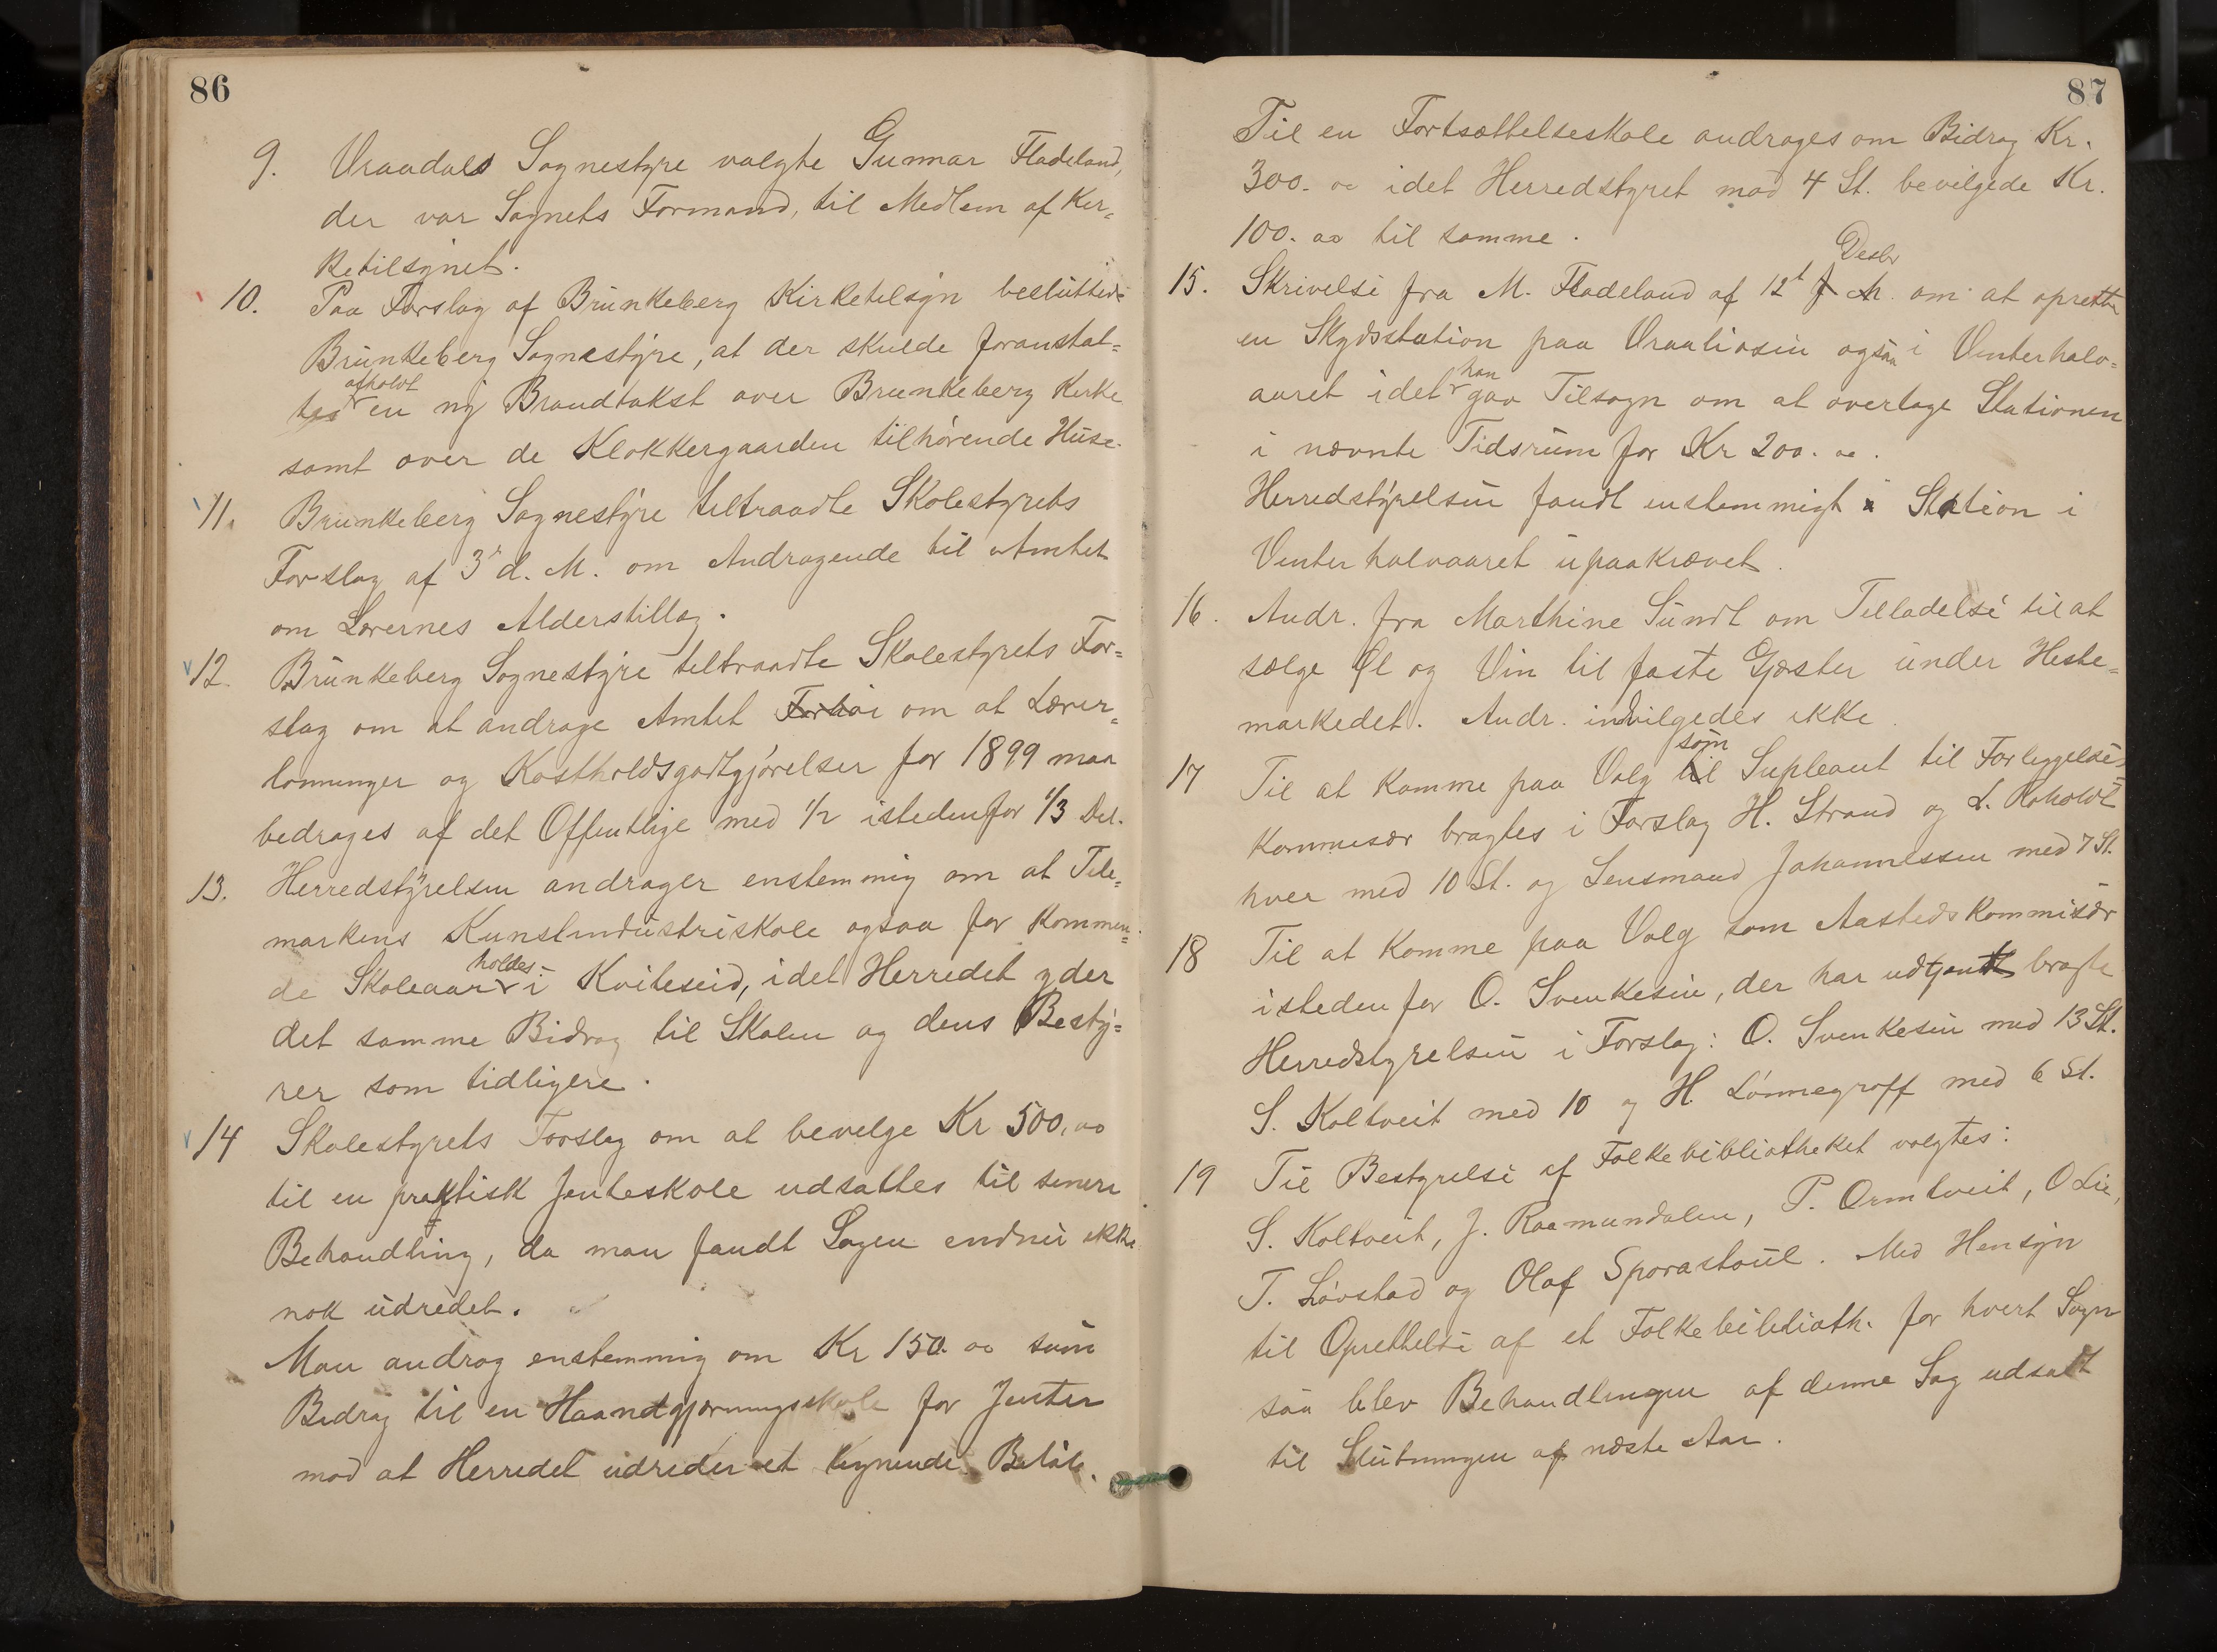 86
9. Vraadals Sognestyre valgte Gunnar Fladeland,
der var Sognets Formand, til Medlem af Kir=
ketilsynet.
10. Paa Forslag af Brunkeberg Kirketilsyn besluttede
Brunkeberg Sognestyre, at der skulde foranstal=
afholdt
tes en ny Brandtakst over Brunkeberg Kirke
samt over de Klokkergaarden tilhørende Huse.
11. Brunkeberg Sognestyre tiltraadte Skolestyrets
Forslag af 3 d. M. om Andragende til Amtet
om Lærernes Alderstillæg.
12. Brunkeberg Sognestyre tiltraadte Skolestyrets For=
slag om at andrage Amtet om at Lærer=
lønninger og Kostholdsgodtgjørelser for 1899 maa
bedrages af det Offentlige med 1/2 istedenfor 1/3 Del.
13. Herredstyrelsen andrager enstemmig om at Tele=
markens Kunstindustriskole ogsaa for kommen=
holdes
de Skoleaar i Kviteseid, idet Herredet yder
det samme Bidrag til Skolen og dens Besty=
rer som tidligere.
14 Skolestyrets Forslag om at bevilge Kr 500,00
til en praktisk Jenteskole udsattes til senere
Behandling, da man fandt Sagen endnu ikke
nok udredet.
Man androg enstemmig om Kr 150.00 som
Bidrag til en Haandgjerningsskole for Jenter
mod at Herredet udreder et lignende Beløb.
87
Til en Fortsættelseskole androges om Bidrag Kr.
300.00 idet Herredstyret mod 4 St. bevilgede Kr.
100.00 til samme.
Desbr
15. Skrivelse fra M. Fladeland af 12t f M. om at oprette
en Skydsstation paa Vraaliosen ogsaa i Vinterhalv=
han
aaret idet gav Tilsagn om at overtage Stationen
i nævnte Tidsrum for Kr 200.00.
Herredstyrelsen fandt enstemmigt Station i
Vinterhalvaaret upaakrævet.
16. Andr. fra Marthine Sundt om Tilladelse til at
sælge Øl og Vin til faste Gjæster under Heste=
markedet. Andr. indvilgedes ikke.
som
17 Til at komme paa Valg til Supleant til Forliggelses
kommisær bragtes i Forslag H. Strand og L. Roholdt
hver med 10 St. og Lensmand Johannessen med 7 St.
18 Til at komme paa Valg som Aastedskommisær
isteden for O. Svenkesen, der har udtjent bragte
Herredstyrelsen i Forslag: O. Svenkesen med 13 St.
S. Koltveit med 10 og H. Lønnegroff med 6 St.
19 Til Bestyrelse af Folkebibliotheket valgtes:
S. Koltveit, J. Raamundalen, P. Ormtveit, O Lie,
T. Løvstad og Olaf Sporastoul. Med Hensyn
til Oprettelse af et Folkebiblioth. for hvert Sogn
saa blev Behandlingen af denne Sag udsadt
til Slutningen af næste Aar.